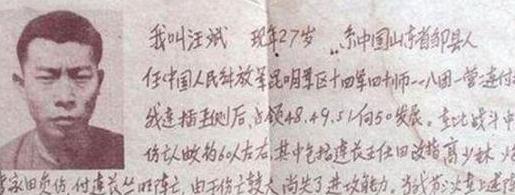 我叫汪斌 现年27岁 系中国山东省邹县人
任中国人民解放军昆明军区十四军四十师一一八团一营一连付
我连插到后,占领48.49.51向50发展。在此战斗中
伤亡人数约60人左右,其中包括连长王仕田政指高少林
家田负伤,付连长丛明阵亡,由于伤亡较大尚失了进攻能力,